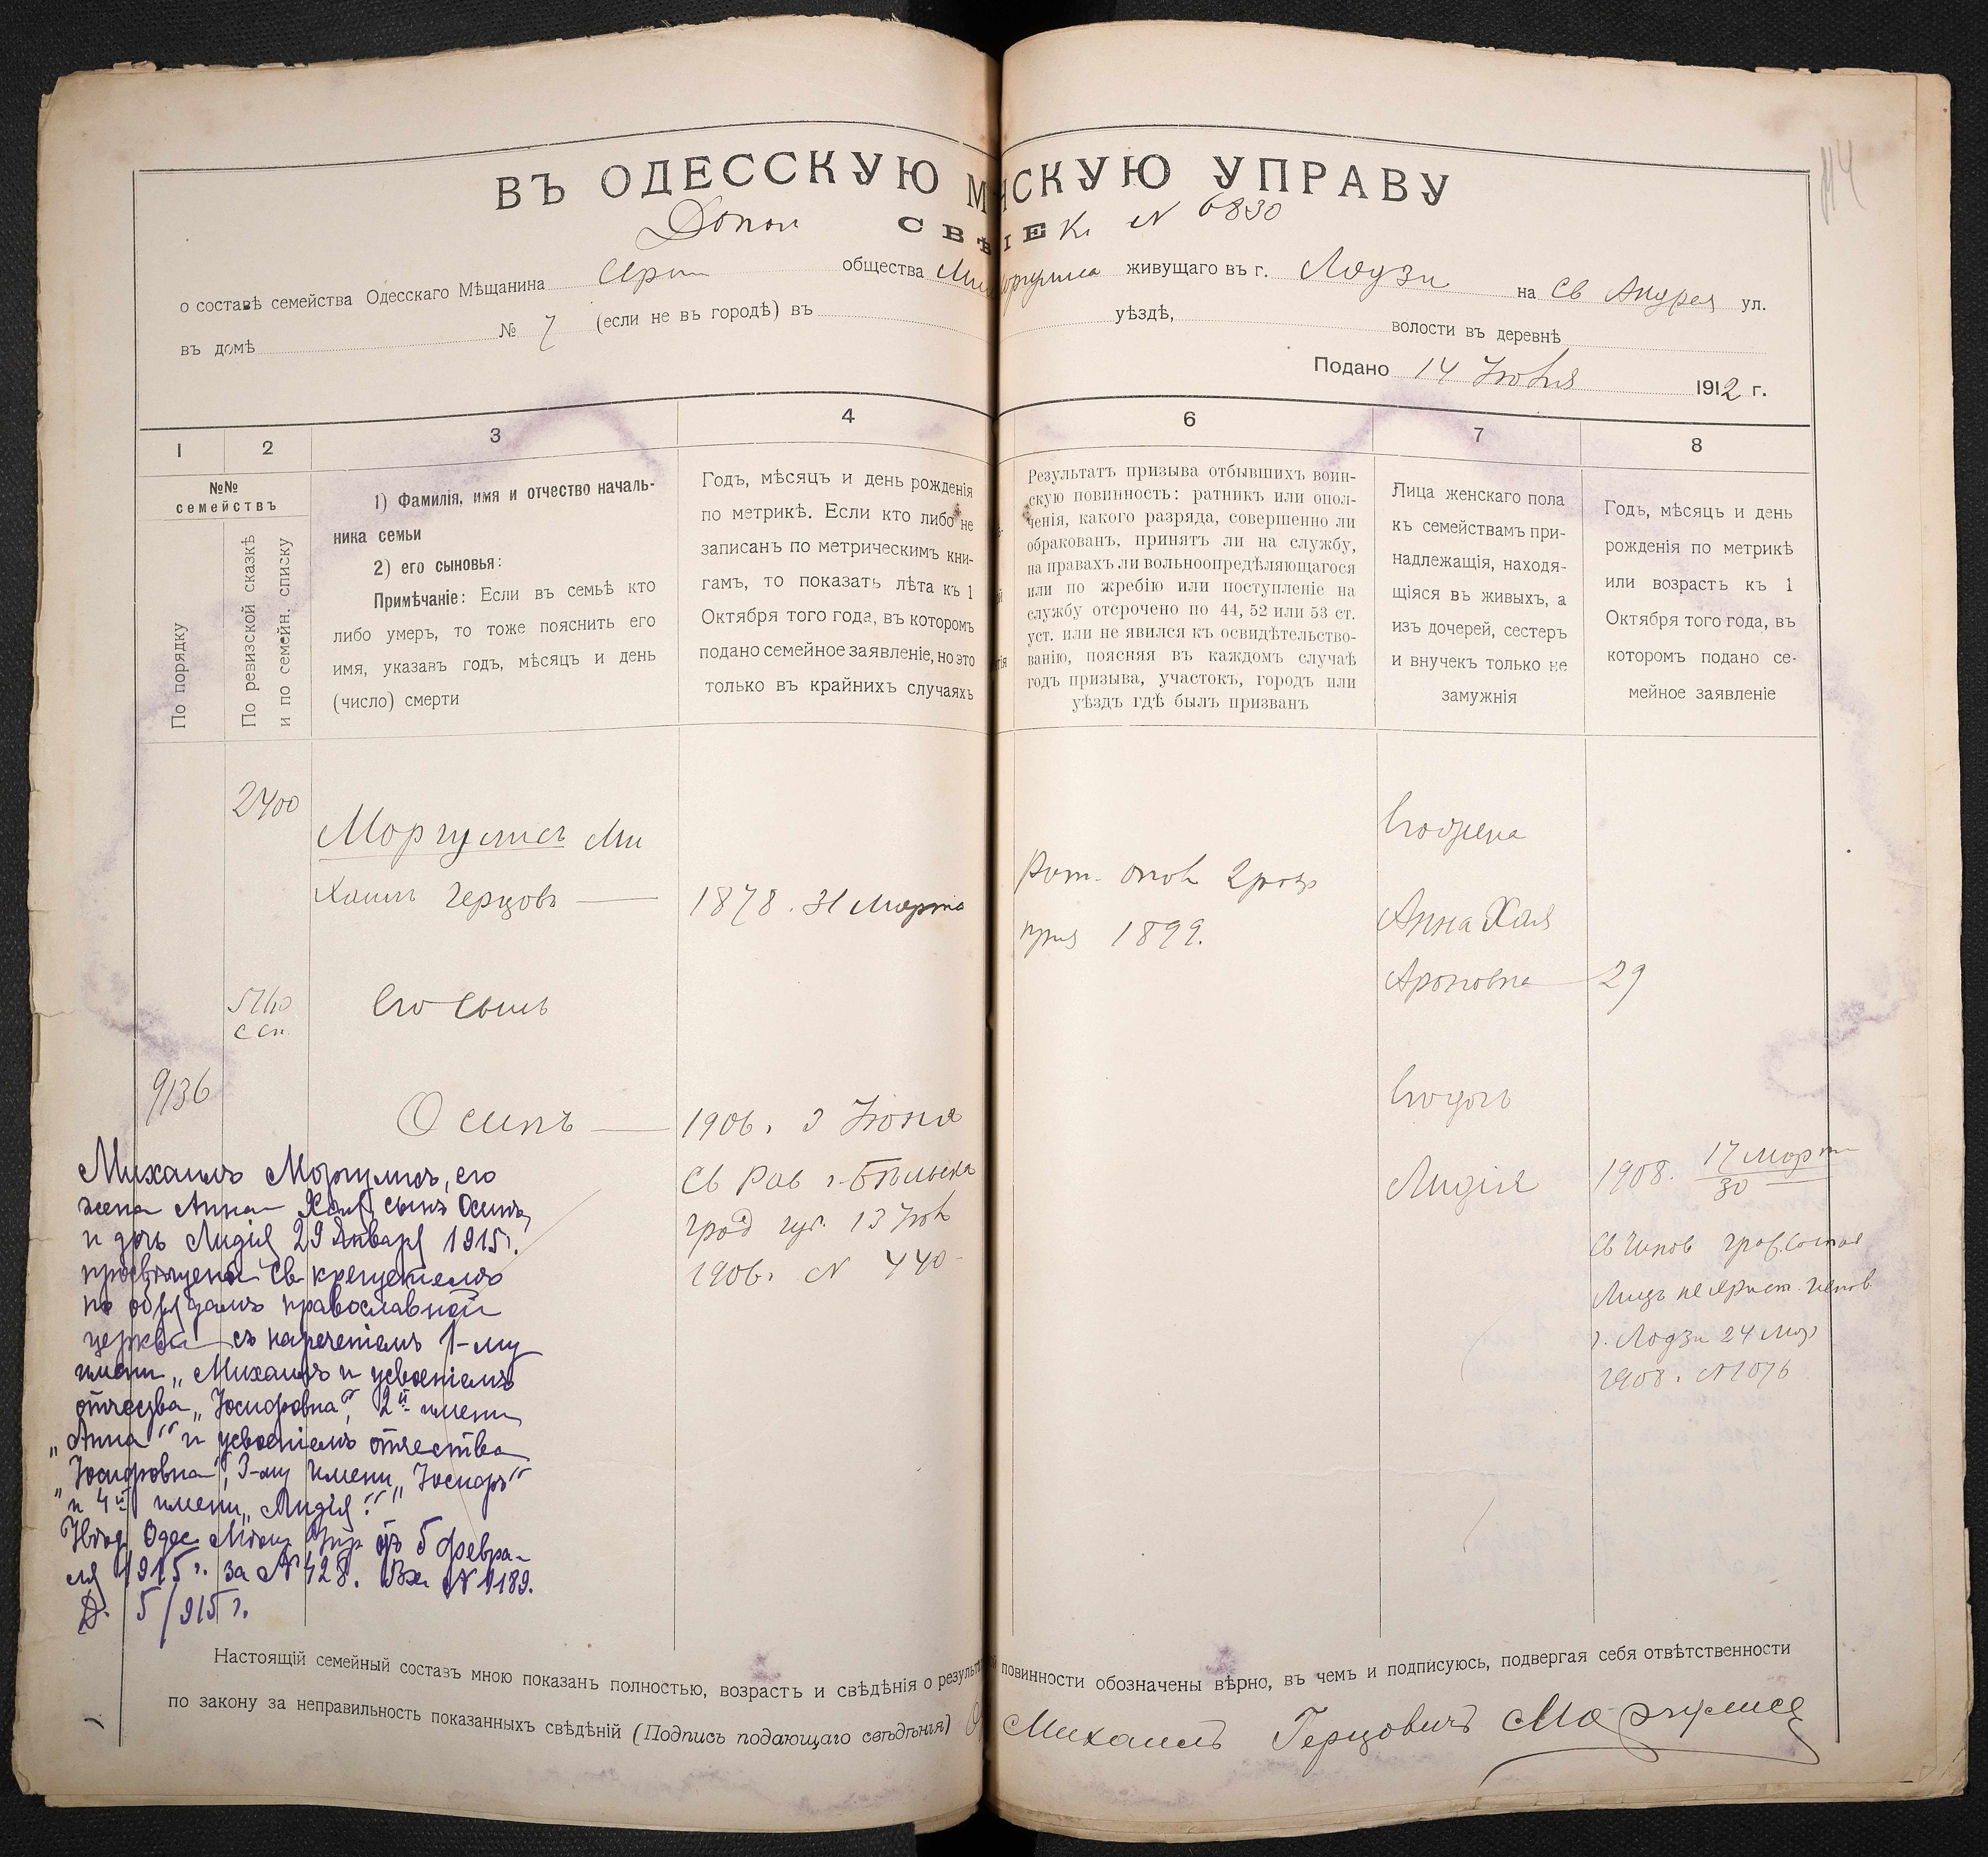 ВЪ ОДЕССКУЮ М НСКУЮ УПРАВУ
Допол К № 6830
СВѢ IЕ
о составѣ семейства Одесскаго Мѣщанина общества Ми Моргулиса живущаго въ г. Лодзи на Св Андрея ул.
въ домѣ № 7 (если не въ городѣ) въ уѣздѣ, волости въ деревнѣ
Подано 14 1912 г.
1 2 3 4 6 7 8
№№
семействъ
По порядку
По ревизской сказкѣ
и по семейн. списку
1) Фамилія, имя и отчество началь-
ника семьи
2) его сыновья:
Примѣчаніе: Если въ семьѣ кто
либо умеръ, то тоже пояснить его
имя, указавъ годъ, мѣсяцъ и день
(число) смерти
Годъ, мѣсяцъ и день рожденія
по метрикѣ. Если кто либо не
записанъ по метрическимъ кни-
гамъ, то показать лѣта къ 1
Октября того года, въ которомъ
подано семейное заявленіе, но это
только въ крайнихъ случаяхъ
Результатъ призыва отбывшихъ воин-
скую повинность: ратникъ или опол-
ченія, какого разряда, совершенно ли
обракованъ, принятъ ли на службу,
на правахъ ли вольноопредѣляющагося
или по жребію или поступленіе на
службу отсрочено по 44, 52 или 53 ст.
уст. или не явился къ освидѣтельство-
ванію, поясняя въ каждомъ случаѣ
годъ призыва, участокъ, городъ или
уѣздъ гдѣ былъ призванъ
Лица женскаго пола
къ семействамъ при-
надлежащія, находя-
щіяся въ живыхъ, а
изъ дочерей, сестеръ
и внучекъ только не
замужнія
Годъ, мѣсяцъ и день
рожденія по метрикѣ
или возрастъ къ 1
Октября того года, въ
которомъ подано се-
мейное заявленіе
2400
Моргулисъ Ми
хаилъ Герцовъ
1878. 31 Марта
Рат. опол 2 разр
приз 1899.
Его жена
Анна Хая
Ароновна 29
с сп.
Его сынъ
9136
Осипъ
1906. 3 Іюня
Св Рав г. Бѣльска
грод губ. 13 Іюн
1906 г № 440
Его дочь
Лидія
1908. 17 Март
30
Св Чинов граж. состоя
Лицъ не христ. испов
г. Лодзи 24 Мар
1908. № 1076
Михаилъ Моргулисъ, его
жена Анна Хая, сынъ Осипъ,
и дочь Лидія 29 Января 1915 г.
просвящены св крещеніемъ
по обрядамъ православной
церкви съ нареченіемъ 1-му
имени „Михаилъ и усвоеніемъ
отчества „Іосифовна“, 2й имени
„Анна“ и усвоеніемъ отчества
„Іосифовна“, 3-му имени „Іосифъ“
и 4й имени „Лидія“.
Одес Мѣщ Упр отъ 5 февра-
ля 1915 г. за № 428. Вх № 1189.
Д. 5/915 г.
Настоящій семейный составъ мною показанъ полностью, возрастъ и свѣдѣнія о резуль повинности обозначены вѣрно, въ чемъ и подписуюсь, подвергая себя отвѣтственности
по закону за неправильность показанныхъ свѣдѣній (Подпись подающаго свѣдѣнія) Михаилъ Герцовичъ Моргулисъ